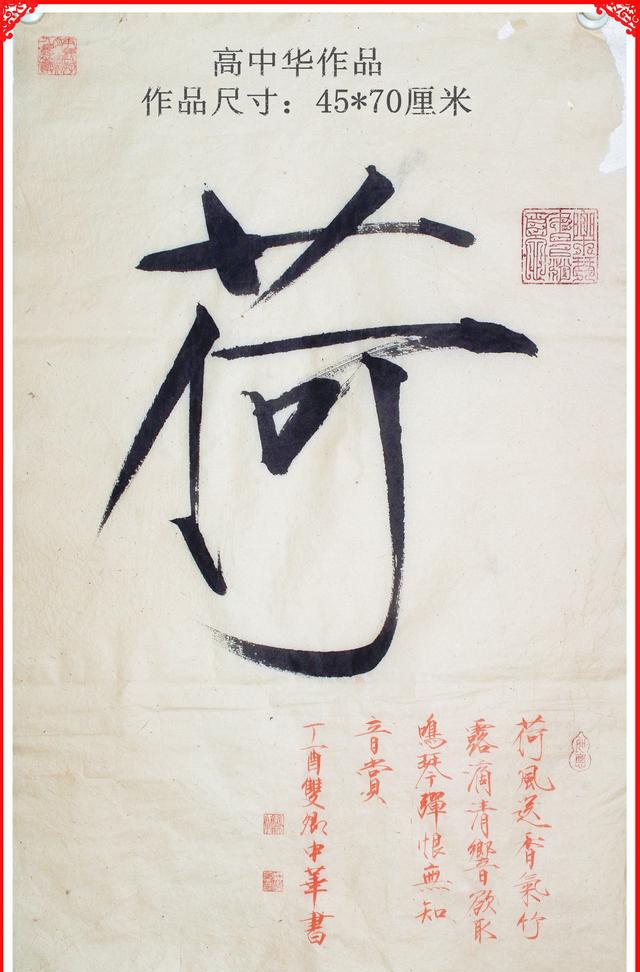 高中华作品
作品尺寸：45*70厘米
荷
荷風送香氣竹
露滴清響欲取
鳴琴彈恨無知
音賞
丁酉雙卿中華書